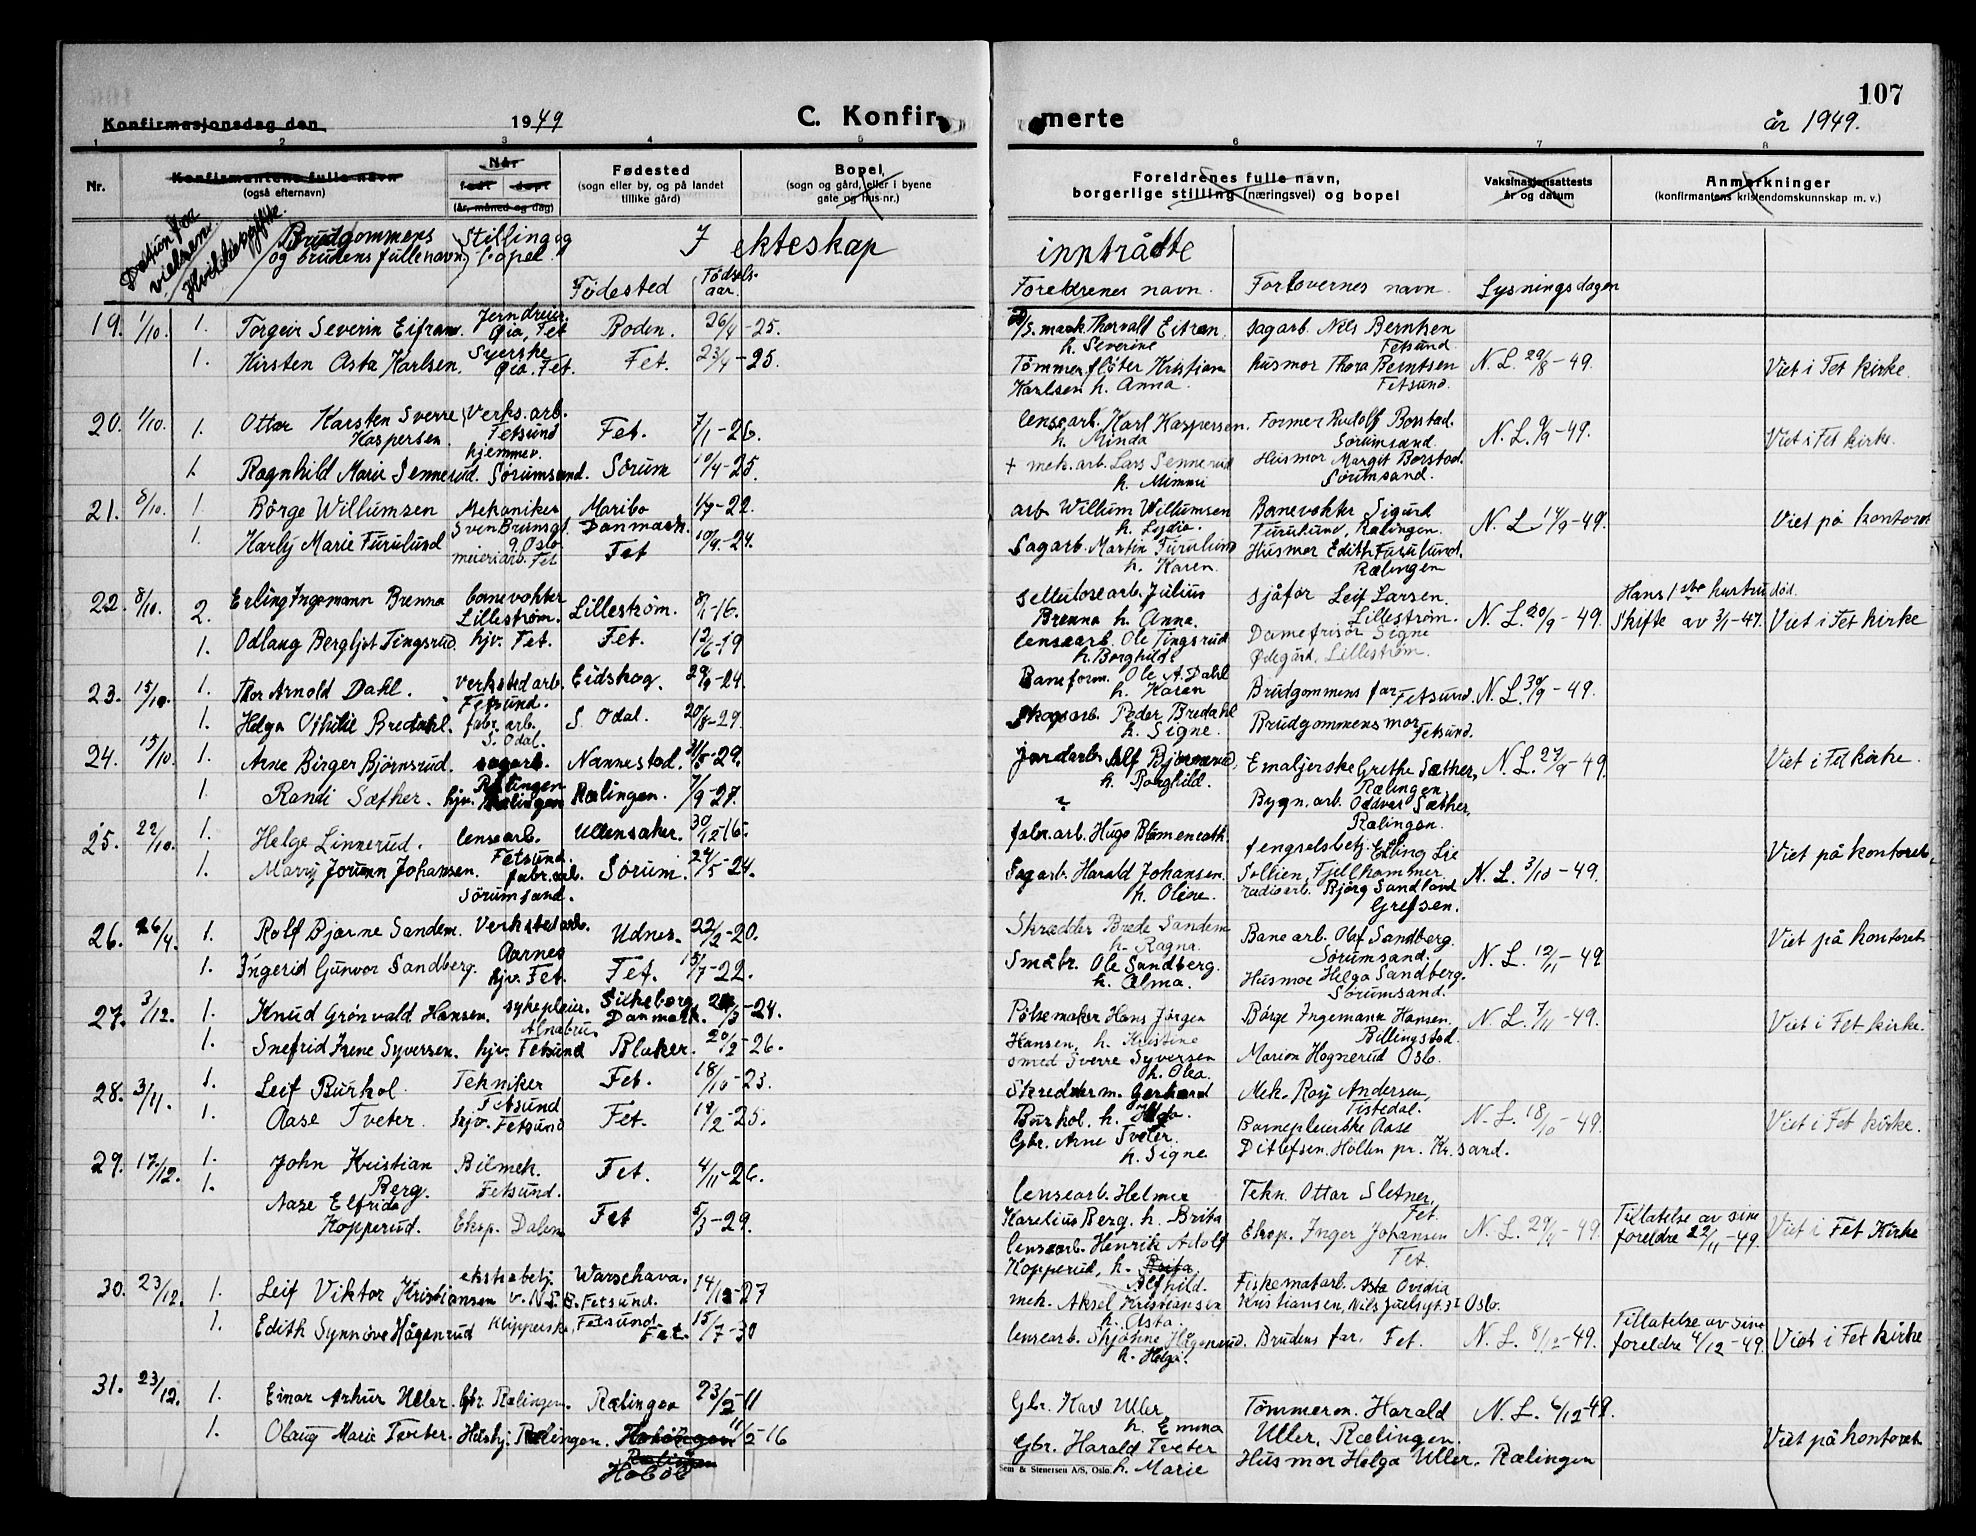 107
Konfirmasjonsdag den 1949 C. Konfirmerte år 1949.
1 2 3 4 5 6 7 8
Nr.
Konfirmantens fulle navn
(også efternavn)
Når
født døpt
(år, måned og dag)
Fødested
(sogn eller by, og på landet
tillike gård)
Bopel
(sogn og gård, eller i byene
gate og hus-nr.)
Foreldrenes fulle navn,
borgerlige stilling (næringsvei) og bopel
Vaksinasjonsattests
år og datum
Anmerkninger
(konfirmantens kristendomskunnskap m. v.)
Brudgommens
og brudens fulle navn
Stilling og
bopel
I ekteskap inntrådte
Fødested
Fødsels-
aar.
Foreldrenes navn. Forlovernes navn Lysningsdagen
19. 1/10. 1. Torgeir Severin Eifram. Jerndreier Øia, Fet Boden. 26/4-25. Thorvald Eitran, h. Severine sagarb. Nils Berntsen Fetsund.
1. Kirsten Asta Karlsen. Syerske Øia. Fet. Fet. 23/4-25. Tömmerfløter Kristian Karlsen h. Anna. husmor Thora Berntsen Fetsund. N. L. 29/8-49. Viet i Fet kirke.
20. 1/10. 1. Ottar Karsten Sverre Kaspersen. Verks.arb. Fetsund Fet. 7/1-26. lensearb. Karl Kaspersen. h. Minda Former Rudolf Borstad. Sørumsand. N. L. 9/9-49. Viet i Fet kirke.
1. Ragnhild Marie Sennerud. hjemmev. Sørumsand. Sørum 10/4-25. + mek. arb. Lars Sennerud h. Mimmi Husmor Margit Borstad. Sørumsand.
21. 8/10. 1. Börge Willumsen Mekaniker Oslo Maribo Danmark. 1/7-22. arb. Willum Willumsen h. Lydia. Banevokter Sigurd Furulund, Rælingen. N. L. 14/9-49. Viet på kontoret
1. Harly Marie Furulund meieriarb. Fet Fet 10/9-24. Sagarb. Martin Furulund h. Karen. Husmor Edith Furulund. Rælingen
22. 8/10. 2. Erling Ingemann Brenna banevokter Lillestrøm. Lillestrøm. 8/1-16. sellulosearb. Julius Brenna h. Anna. sjåfør Leif Larsen. Lillestrøm. N. L. 20/9-49. Hans 1ste hustru død. Skifte av 3/1-47. Viet i Fet kirke
1. Odlaug Bergljot Tingsrud. hjv. Fet. Fet. 12/6-19 lensearb. Ole Tingsrud h. Borghild. Damefrisør Signe Ødegård, Lillestrøm.
23. 15/10. 1. Thor Arnold Dahl. verkstedarb. Fetsund. Eidskog. 29/9-24. Baneform. Ole A. Dahl h. Karen Brudgommens far Fetsund. N. L. 30/9-49.
1. Helga Othilie Bredahl. fabr. arb. S. Odal. S. Odal. 20/8-29. Skogsarb. Peder Bredahl h. Signe. Brudgommens mor Fetsund.
24. 15/10. 1. Arne Birger Bjørnsrud. sagarb. Rælingen Nannestad. 31/8-29. jordarb. Alf Bjørnsrud, h. Borghild. Emaljerske Grethe Sæther, Rælingen. N. L. 27/9-49. Viet i Fet kirke.
1. Randi Sæther. hjv. Rælingen Rælingen. 7/9-27. ? Bygn. arb. Oddvar Sæther, Rælingen.
25. 22/10. 1. Helge Linnerud. lensearb. Fetsund. Ullensaker. 30/12-16. fabr. arb. Hugo fengselsbetj. Erling Lie Sollien, Fjellhammer. N. L. 3/10-49. Viet på kontoret.
1. Marry Jorunn Johansen. fabr. arb. Sørumsand. Sørum. 24/5-24. Sagarb. Harald Johansen. h. Oline. radioarb. Bjørg Sandlund Grefsen.
26. 26/4. 1. Rolf Bjarne Sandem. Verkstedarb. Aarnes Udnes. 22/2-20. Skredder Brede Sandem h. Ragna. Banearb. Olaf Sandberg. Sørumsand. N. L. 12/11-49 Viet på kontoret
1. Ingerid Gunvor Sandberg. hjv. Fet. Fet. 15/7-22. Småbr. Ole Sandberg. h. Alma. Husmor Helga Sandberg. Sørumsand.
27. 3/12. 1. Knud Grönvald Hansen. sykepleier. Alnabru Silkeborg Danmark. -24. Pölsemaker Hans Jörgen Hansen, h. Kristine Börge Ingemann Hansen. Billingstad. N. L. 7/11-49. Viet i Fet kirke.
1. Snefrid Irene Syversen. hjv. Fetsund Blaker. 20/2-26. smed Sverre Syversen h. Olea. Marion Hognerud Oslo.
28. 3/11. 1. Leif Burhol. Tekniker Fetsund Fet. 18/10-23. Skreddderm. Gerhard Burhol, h. Mek. Roy Andersen, Tistedal. N. L. 18/10-49. Viet i Fet kirke.
1. Aase Tveter. hjv. Fetsund Fet. 19/2-25. Gbr. Arne Tveter. h. Signe Barnepleierske Aase Ditlefsen. Hölen pr. Kr. sand.
29. 17/12. 1. John Kristian Berg. Bilmek. Fetsund. Fet. 4/11-26. lensearb. Helmer Karelius Berg. h. Brita Tekn. Ottar Sletner, Fet.
1. Aase Elfrida Kopperud. Eksp. Dalen Fet 5/3-29. lensearb. Henrik Adolf Kopperud, h. Brita. Alfhild. Eksp. Inger Johansen Fet. N. L. 29/11-49. Tillatelse av sine foreldre 22/11-49. Viet i Fet Kirke
30. 23/12. 1. Leif Viktor Kristiansen ekstrabetj. v. N.S.B. Fetsund. Warschava. 14/12-27 mek. Aksel Kristiansen h. Asta. Fiskematarb. Asta Ovidia Kristiansen, Nils Juelsgt. 3I Oslo.
1. Edith Synnöve Hågenrud Klipperske, Fetsund Fet. 15/7-30 lensearb. Skjöhne Hågenrud. h. Helga. Brudens far. Fet. N. L. 8/12-49. Tillatelse av sine foreldre 4/12-49. Viet i Fet kirke
31. 23/12. 1. Einar Arhur Uller. Gbr. Rælingen. Rælingen 23/2-11 Gbr. Karl Uller h. Emma Tömmerm. Harald Uller, Rælingen. N. L. 6/12-49.
1. Olaug Marie Tveter. Hushj. Rælingen. Hobøl 11/2-16 Gbr. Harald Tveter h. Marie Husmor Helga Uller. Rælingen Viet på kontoret
Sem & Stenersen A/S, Oslo.